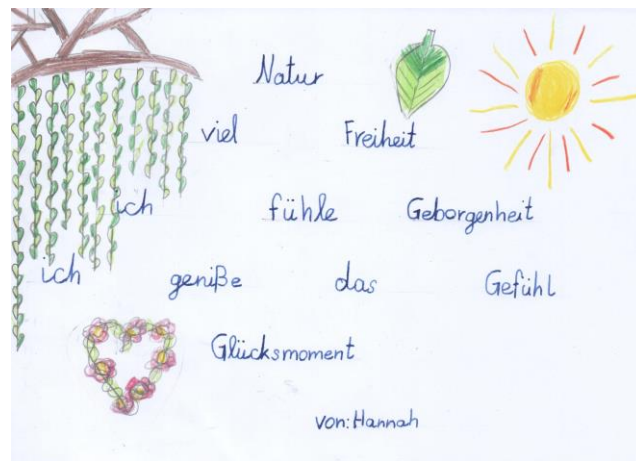 Natur
viel Freiheit
ich fühle Geborgenheit
ich geniße das Gefühl
Glücksmoment
von: Hannah